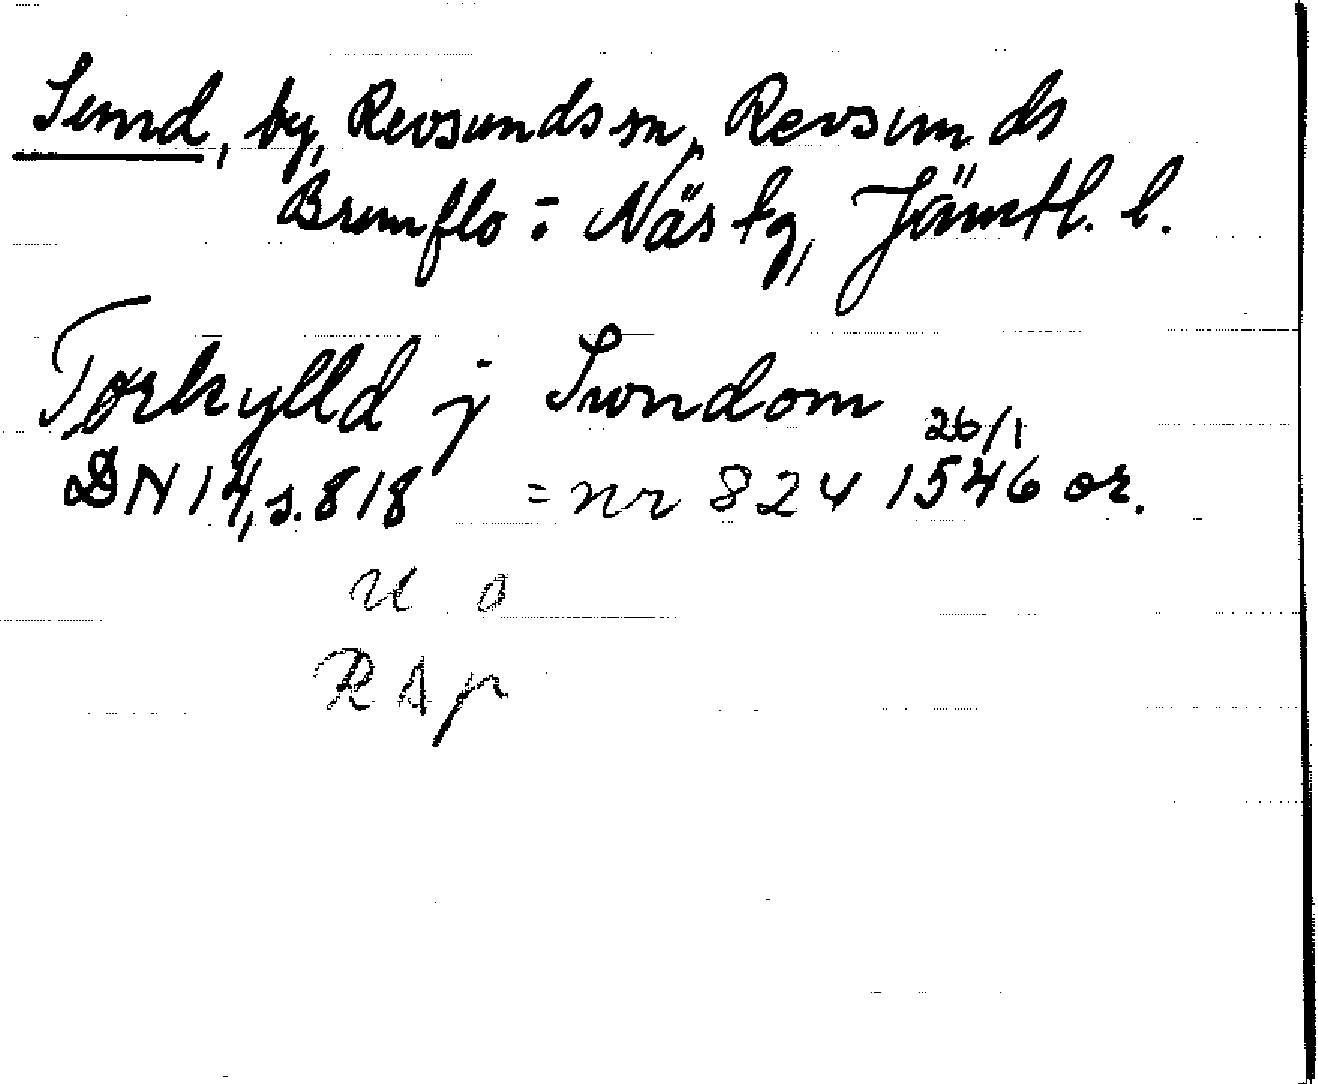 Sund, by, Revsunds sn, Revsunds
Brunflo = Näs tg, Jämtl. l.
Torkylld j Swndom
26/1
DN 14, s. 818 = nr 824 1546 or.
u o
RAp